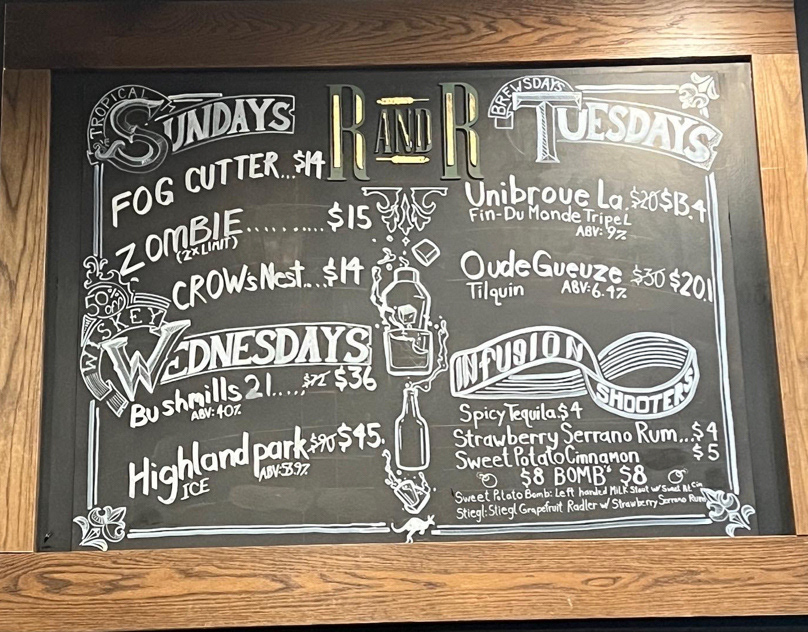 R AND R
TROPICAL
SUNDAYS
FOG CUTTER...$14
ZOMBIE.......... $15
(2X LIMIT)
CROW'S Nest...$14
50% off
WHISKEY
WEDNESDAYS
Bushmills 21....$72 $36
ABV: 40%
Highland park $90 $45.
ICE ABV:53.9%
BREWSDAYS
TUESDAYS
Unibroue La. $20 $13.4
Fin-Du Monde Tripel
ABV: 9%
Oude Gueuze $30 $20.1
Tilquin ABV: 6.4%
INFUSION
SHOOTERS
Spicy Tequila $4
Strawberry Serrano Rum...$4
Sweet Potato Cinnamon $5
$8 BOMB'S $8
Sweet Potato Bomb: Left handed Milk Stout w/ Sweet Pot. Cin
Stiegl: Stiegl Grapefruit Radler w/ Strawberry Serrano Rum